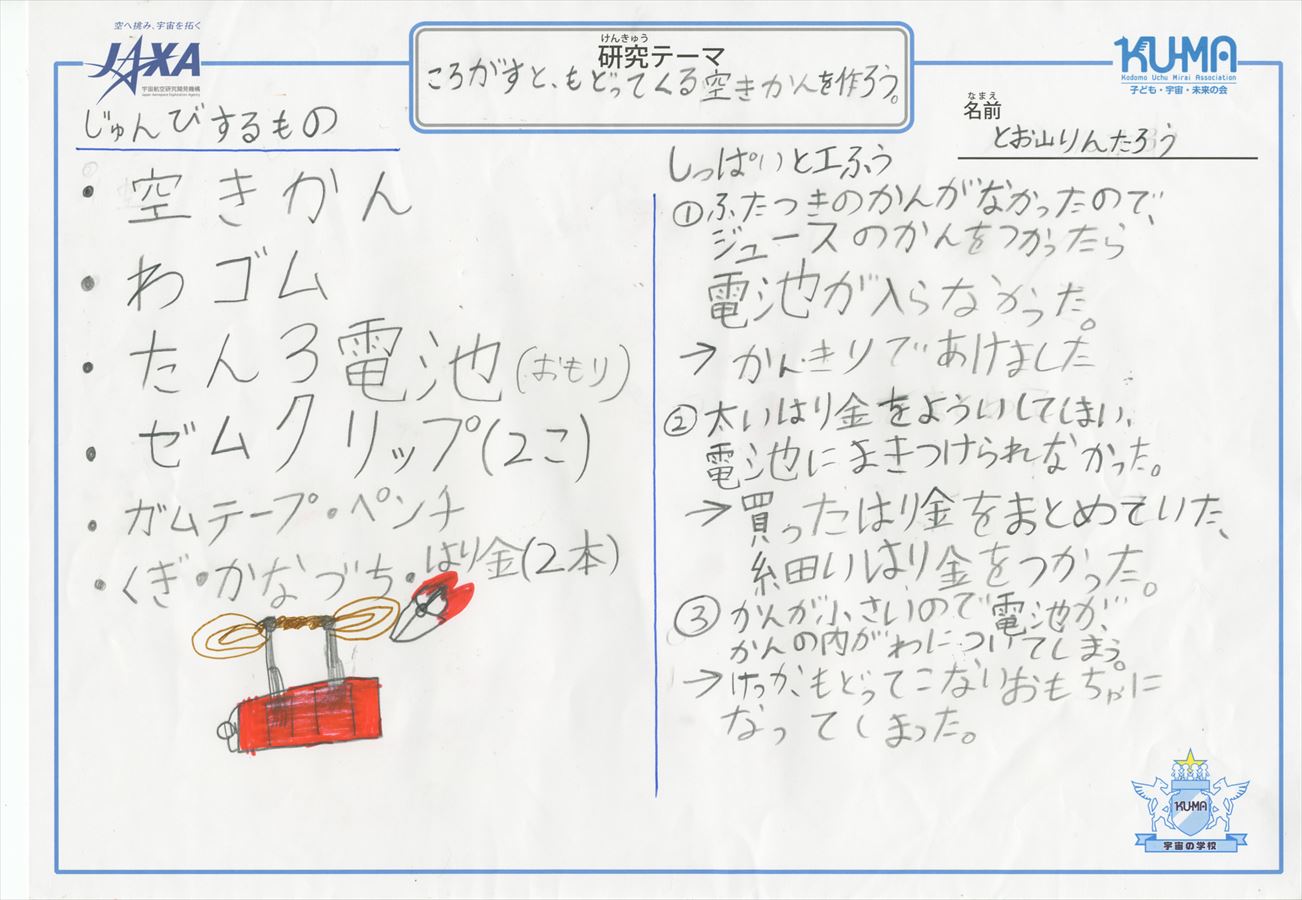 空へ挑み、宇宙を拓く
JAXA
宇宙航空研究開発機構
Japan Aerospace Exploration Agency
けんきゅう
研究テーマ
ころがすと、もどってくる空きかんを作ろう。
KU-MA
Kodomo Uchu Mirai Association
子ども・宇宙・未来の会
なまえ
名前
とお山りんたろう
じゅんびするもの
・空きかん
・わゴム
・たんろ電池(おもり)
・ゼムクリップ(2こ)
・ガムテープ・ペンチ
・くぎ・かなづち・はり金(2本)
しっぱいと工ふう
①ふたつきのかんがなかったので、
ジュースのかんをつかったら
電池が入らなかった。
→かんきりであけました
②太いはり金をよういしてしまい、
電池にまきつけられなかった。
→買ったはり金をまとめていた、
細いはり金をつかった。
③かんが小さいので電池が、
かんの内がわについてしまう。
→けっか、もどってこないおもちゃに
なってしまった。
KU-MA
宇宙の学校